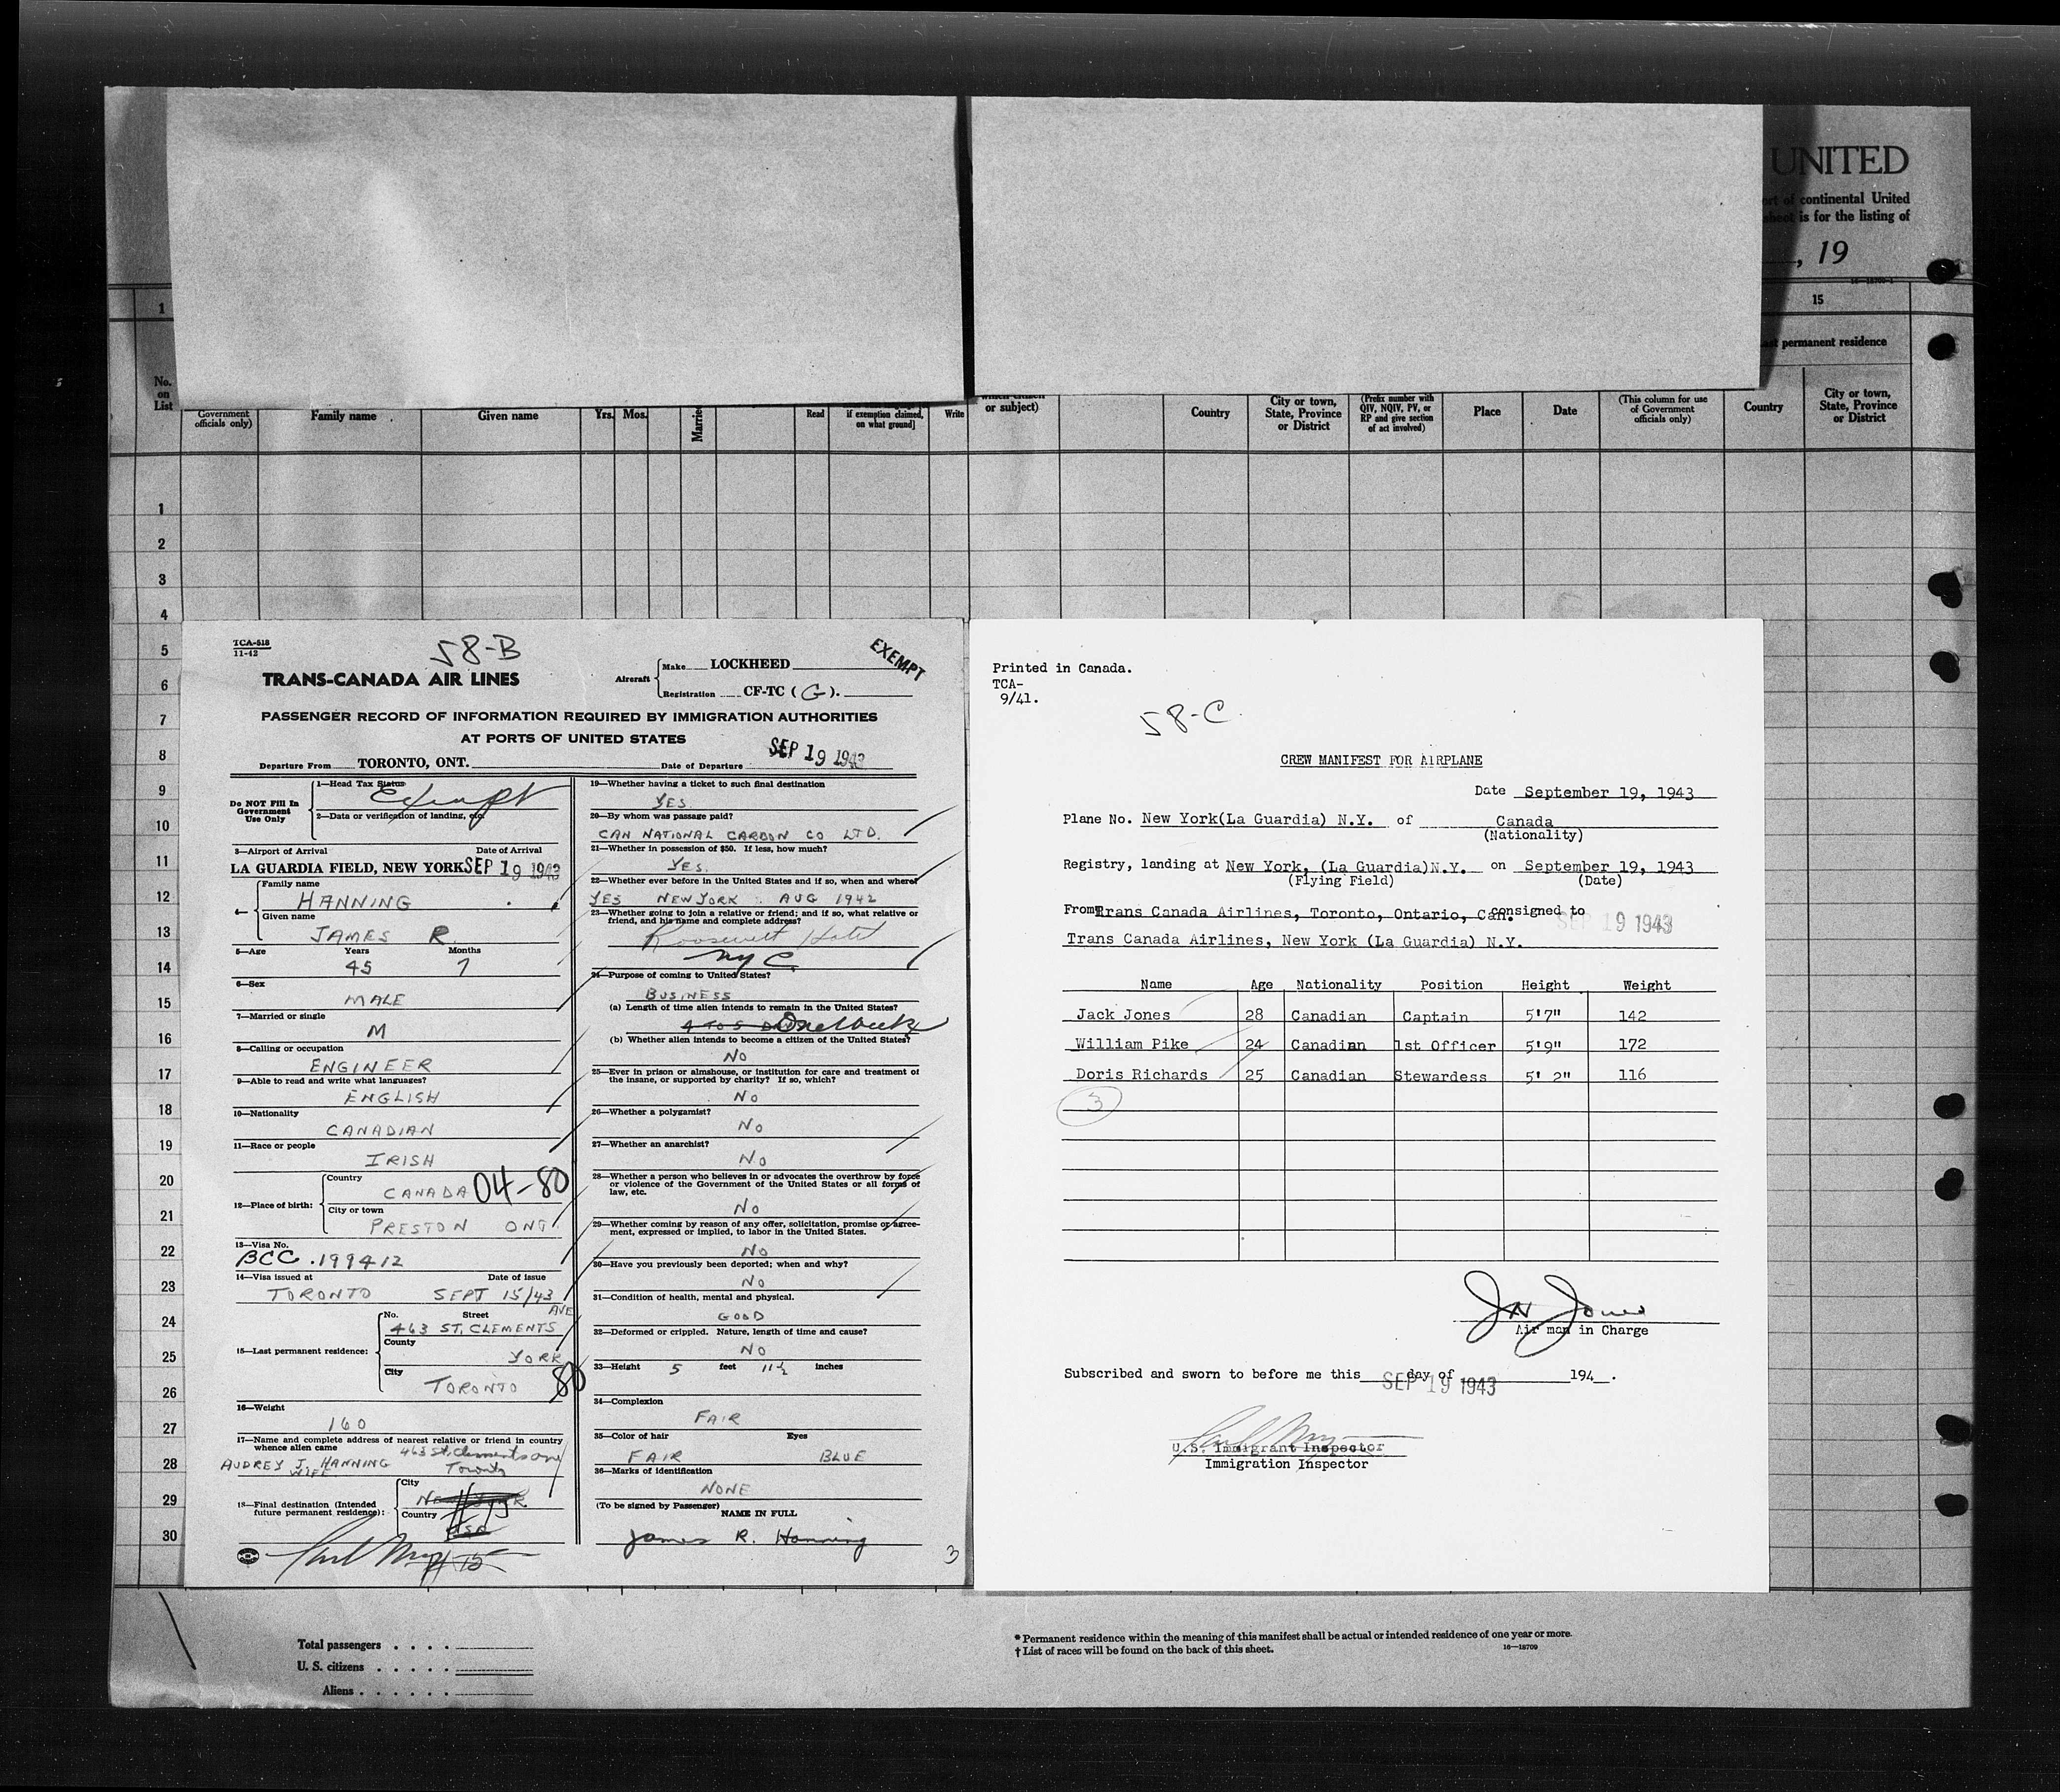 UNITED
continental United
is for the listing of
, 19
1
15
permanent residence
No.
on
List
Government
officials only)
Family name
Given name
Yrs.
Mos.
Married
Read
if exemption claimed,
on what ground]
Write
or subject)
Country
City or town,
State, Province
or District
(Prefix number with
QIV, NQIV, PV, or
RP and give section
of act involved)
Place
Date
(This column for use
of Government
officials only)
Country
City or town,
State, Province
or District
1
2
3
4
5
6
7
8
9
10
11
12
13
14
15
16
17
18
19
20
21
22
23
24
25
26
27
28
29
30
TCA-518
11-42
58-B
EXEMPT
TRANS-CANADA AIR LINES
Aircraft
Make LOCKHEED
Registration CF-TC (G).
PASSENGER RECORD OF INFORMATION REQUIRED BY IMMIGRATION AUTHORITIES
AT PORTS OF UNITED STATES
Departure From TORONTO, ONT.
Date of Departure SEP 19 1943
Do NOT Fill In
Government
Use Only
1—Head Tax Status
Exempt
2—Data or verification of landing, etc.
3—Airport of Arrival Date of Arrival
LA GUARDIA FIELD, NEW YORK SEP 19 1943
4—
Family name
HANNING
Given name
JAMES R.
5—Age Years Months
45 7
6—Sex
MALE
7—Married or single
M
8—Calling or occupation
ENGINEER
9—Able to read and write what languages?
ENGLISH
10—Nationality
CANADIAN
11—Race or people
IRISH
12—Place of birth:
Country
CANADA 04-80
City or town
PRESTON ONT.
13—Visa No.
BCC .199412
14—Visa issued at Date of issue
TORONTO SEPT 15/43
15—Last permanent residence:
No. Street AVE
463 ST. CLEMENTS
County
YORK
City
TORONTO 80
16—Weight
160
17—Name and complete address of nearest relative or friend in country
whence alien came
463 St. Clements Ave
AUDREY J. HANNING Toronto
WIFE
18—Final destination (Intended
future permanent residence):
City
NEW YORK
Country
USA
19—Whether having a ticket to such final destination
YES
20—By whom was passage paid?
CAN NATIONAL CARBON CO LTD.
21—Whether in possession of $50. If less, how much?
YES.
22—Whether ever before in the United States and if so, when and where?
YES NEW YORK AUG 1942
23—Whether going to join a relative or friend; and if so, what relative or
friend, and his name and complete address?
Roosevelt Hotel
NYC
24—Purpose of coming to United States?
BUSINESS
(a) Length of time alien intends to remain in the United States?
4 TO 5 DAYS One Week
(b) Whether alien intends to become a citizen of the United States?
NO
25—Ever in prison or almshouse, or institution for care and treatment of
the insane, or supported by charity? If so, which?
NO
26—Whether a polygamist?
NO
27—Whether an anarchist?
NO
28—Whether a person who believes in or advocates the overthrow by force
or violence of the Government of the United States or all forms of
law, etc.
NO
29—Whether coming by reason of any offer, solicitation, promise or agree-
ment, expressed or implied, to labor in the United States.
NO
30—Have you previously been deported; when and why?
NO
31—Condition of health, mental and physical.
GOOD
32—Deformed or crippled. Nature, length of time and cause?
NO
33—Height 5 feet 11½ inches
34—Complexion
FAIR
35—Color of hair Eyes
FAIR BLUE
36—Marks of identification
NONE
(To be signed by Passenger)
NAME IN FULL
James R. Hanning
3
Printed in Canada.
TCA-
9/41.
58-C
CREW MANIFEST FOR AIRPLANE
Date September 19, 1943
Plane No. New York(La Guardia) N.Y. of Canada
(Nationality)
Registry, landing at New York, (La Guardia)N.Y. on September 19, 1943
(Flying Field) (Date)
From Trans Canada Airlines, Toronto, Ontario, Can. consigned to
SEP 19 1943
Trans Canada Airlines, New York (La Guardia) N.Y.
Name Age Nationality Position Height Weight
Jack Jones 28 Canadian Captain 5'7" 142
William Pike 24 Canadian 1st Officer 5'9" 172
Doris Richards 25 Canadian Stewardess 5' 2" 116
3
JN Jones
Air man in Charge
Subscribed and sworn to before me this day of 194 .
SEP 19 1943
U.S. Immigrant Inspector
Immigration Inspector
Total passengers . . . .
U. S. citizens . . . . .
Aliens . . . . . .
* Permanent residence within the meaning of this manifest shall be actual or intended residence of one year or more.
† List of races will be found on the back of this sheet.
16—18709